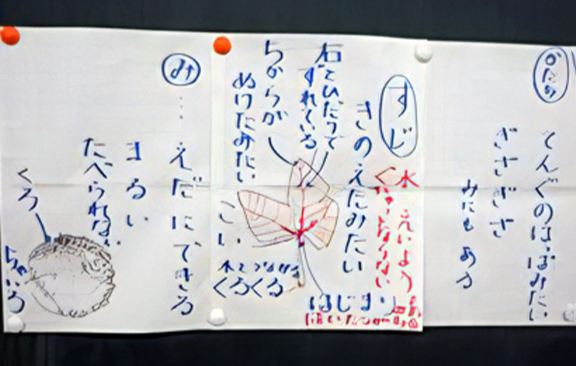 かたち
てんぐのはっぱみたい
ぎざぎざ
みにもある
すじ
水 えいよう
きのえだみたい
右とひだりで
ずれている
ちからが
ぬけたみたい
こい
水とつながる
くろくろ
はじまり
み
えだにできる
まるい
たべられない
くろ
ちゃいろ